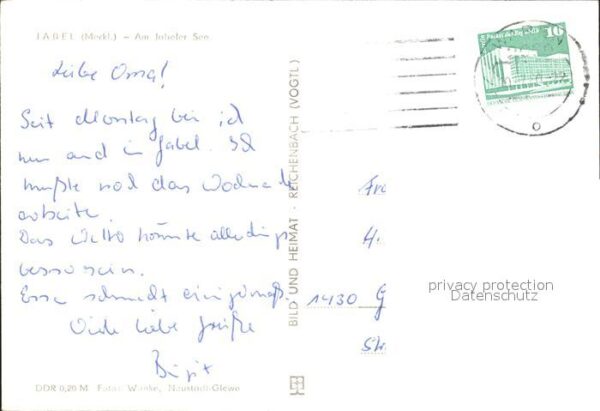 JABEL (Meckl.) – Am Jabeler See
Liebe Oma!
Seit Montag bin ich
nun auch in Jabel. Ich
mußte noch das Wochenende
arbeiten.
Das Wetter könnte allerdings
besser sein.
Essen schmeckt einigermaß.
Viele liebe Grüße
Birgit
DDR 0,20 M Foto: Wanke, Neustadt-Glewe
BILD UND HEIMAT · REICHENBACH (VOGTL)
16
Fra
H.
1430 G
Str.
privacy protection
Datenschutz